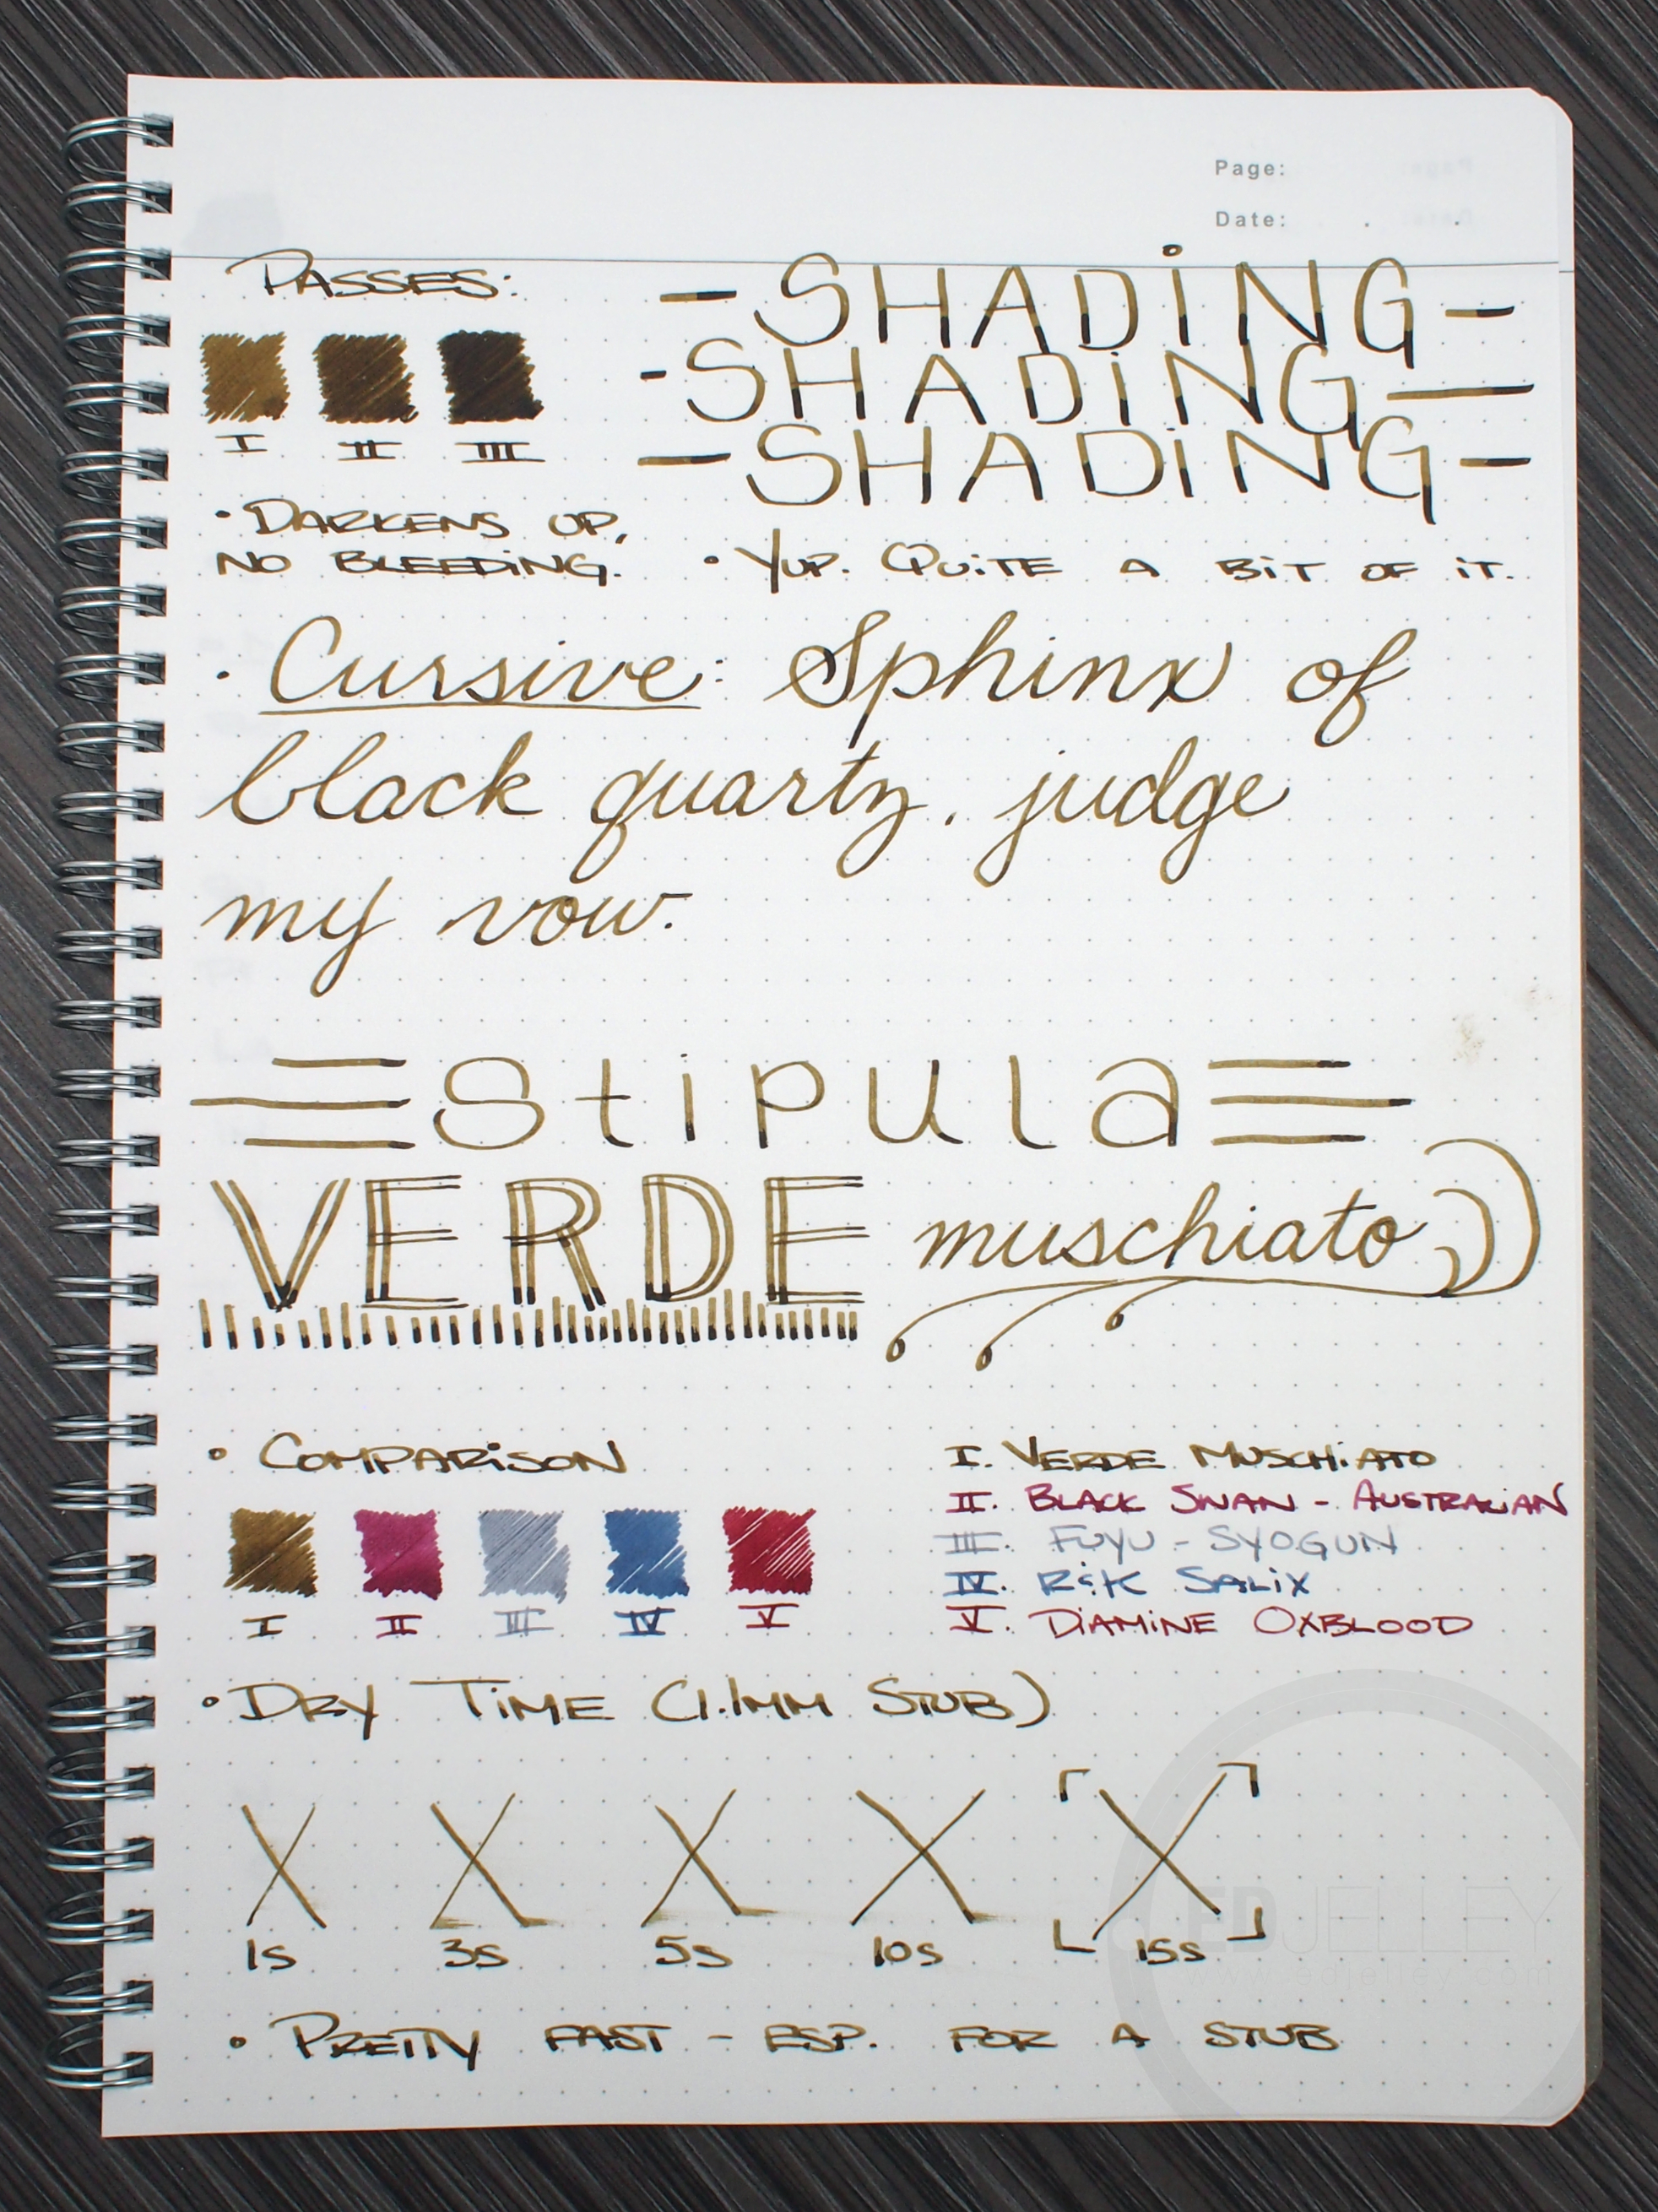 Page:
Date: . .
PASSES:
-SHADiNG-
-SHADiNG-
-SHADiNG-
I II III
• DARKENS UP,
NO BLEEDiNG.
• YUP. QUiTE A BiT OF iT.
• Cursive: Sphinx of
black quartz, judge
my vow.
stipula
VERDE muschiato
• COMPARiSON
I II III IV V
I. VERDE MUSCHiATO
II. BLACK SWAN - AUSTRALiAN
III. FUYU - SYOGUN
IV. R&K SALiX
V. DiAMiNE OXBLOOD
• DRY TiME (1.1MM STUB)
X X X X X
1s 3s 5s 10s 15s
• PRETTY FAST - ESP. FOR A STUB
EDJELLEY
www.edjelley.com